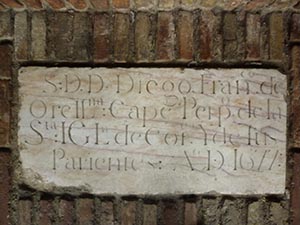 S. D. D. Diego. Fran.co de
Orell.na Cape.n Perp.o de la
S.ta IGL.a de Cor. Y de sus
Parientes: A.o D 1677.